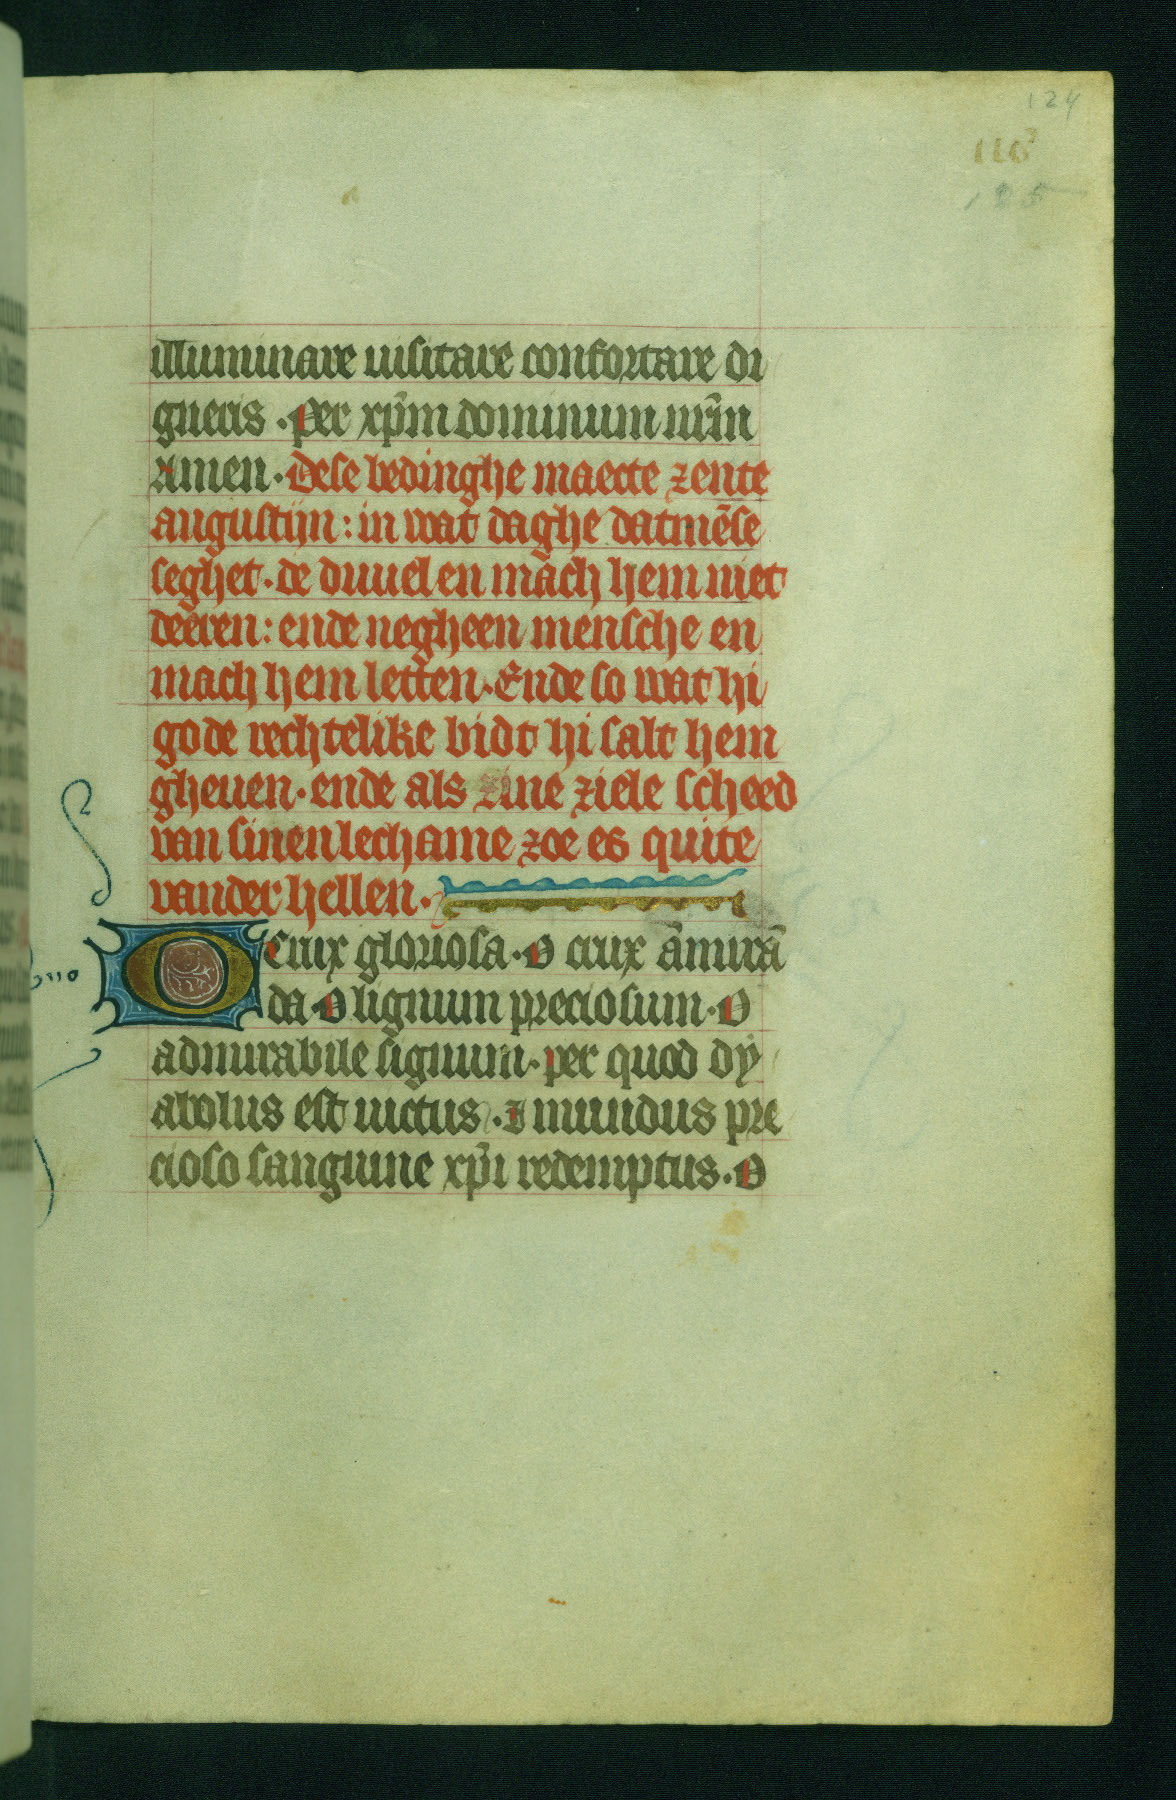 124
116
125
illuminare uisitare confortare di
gneris · Per xp̄m dominum nr̄m
Amen · Dese bedinghe maecte zente
augustijn : in wat daghe datmēse
seghet · de duuel en mach hem niet
deeren : ende negheen mensche en
mach hem letten · Ende so wat hi
gode rechtelike bidt hi salt hem
gheuen · ende als zine ziele scheed
van sinen lechame zoe es quite
vander hellen ·
O crux gloriosa · O crux āmirā
da · O lignum preciosum · O
admirabile signum · per quod dy
abolus est uictus · I mundus pre
cioso sanguine xp̄i redemptus · O